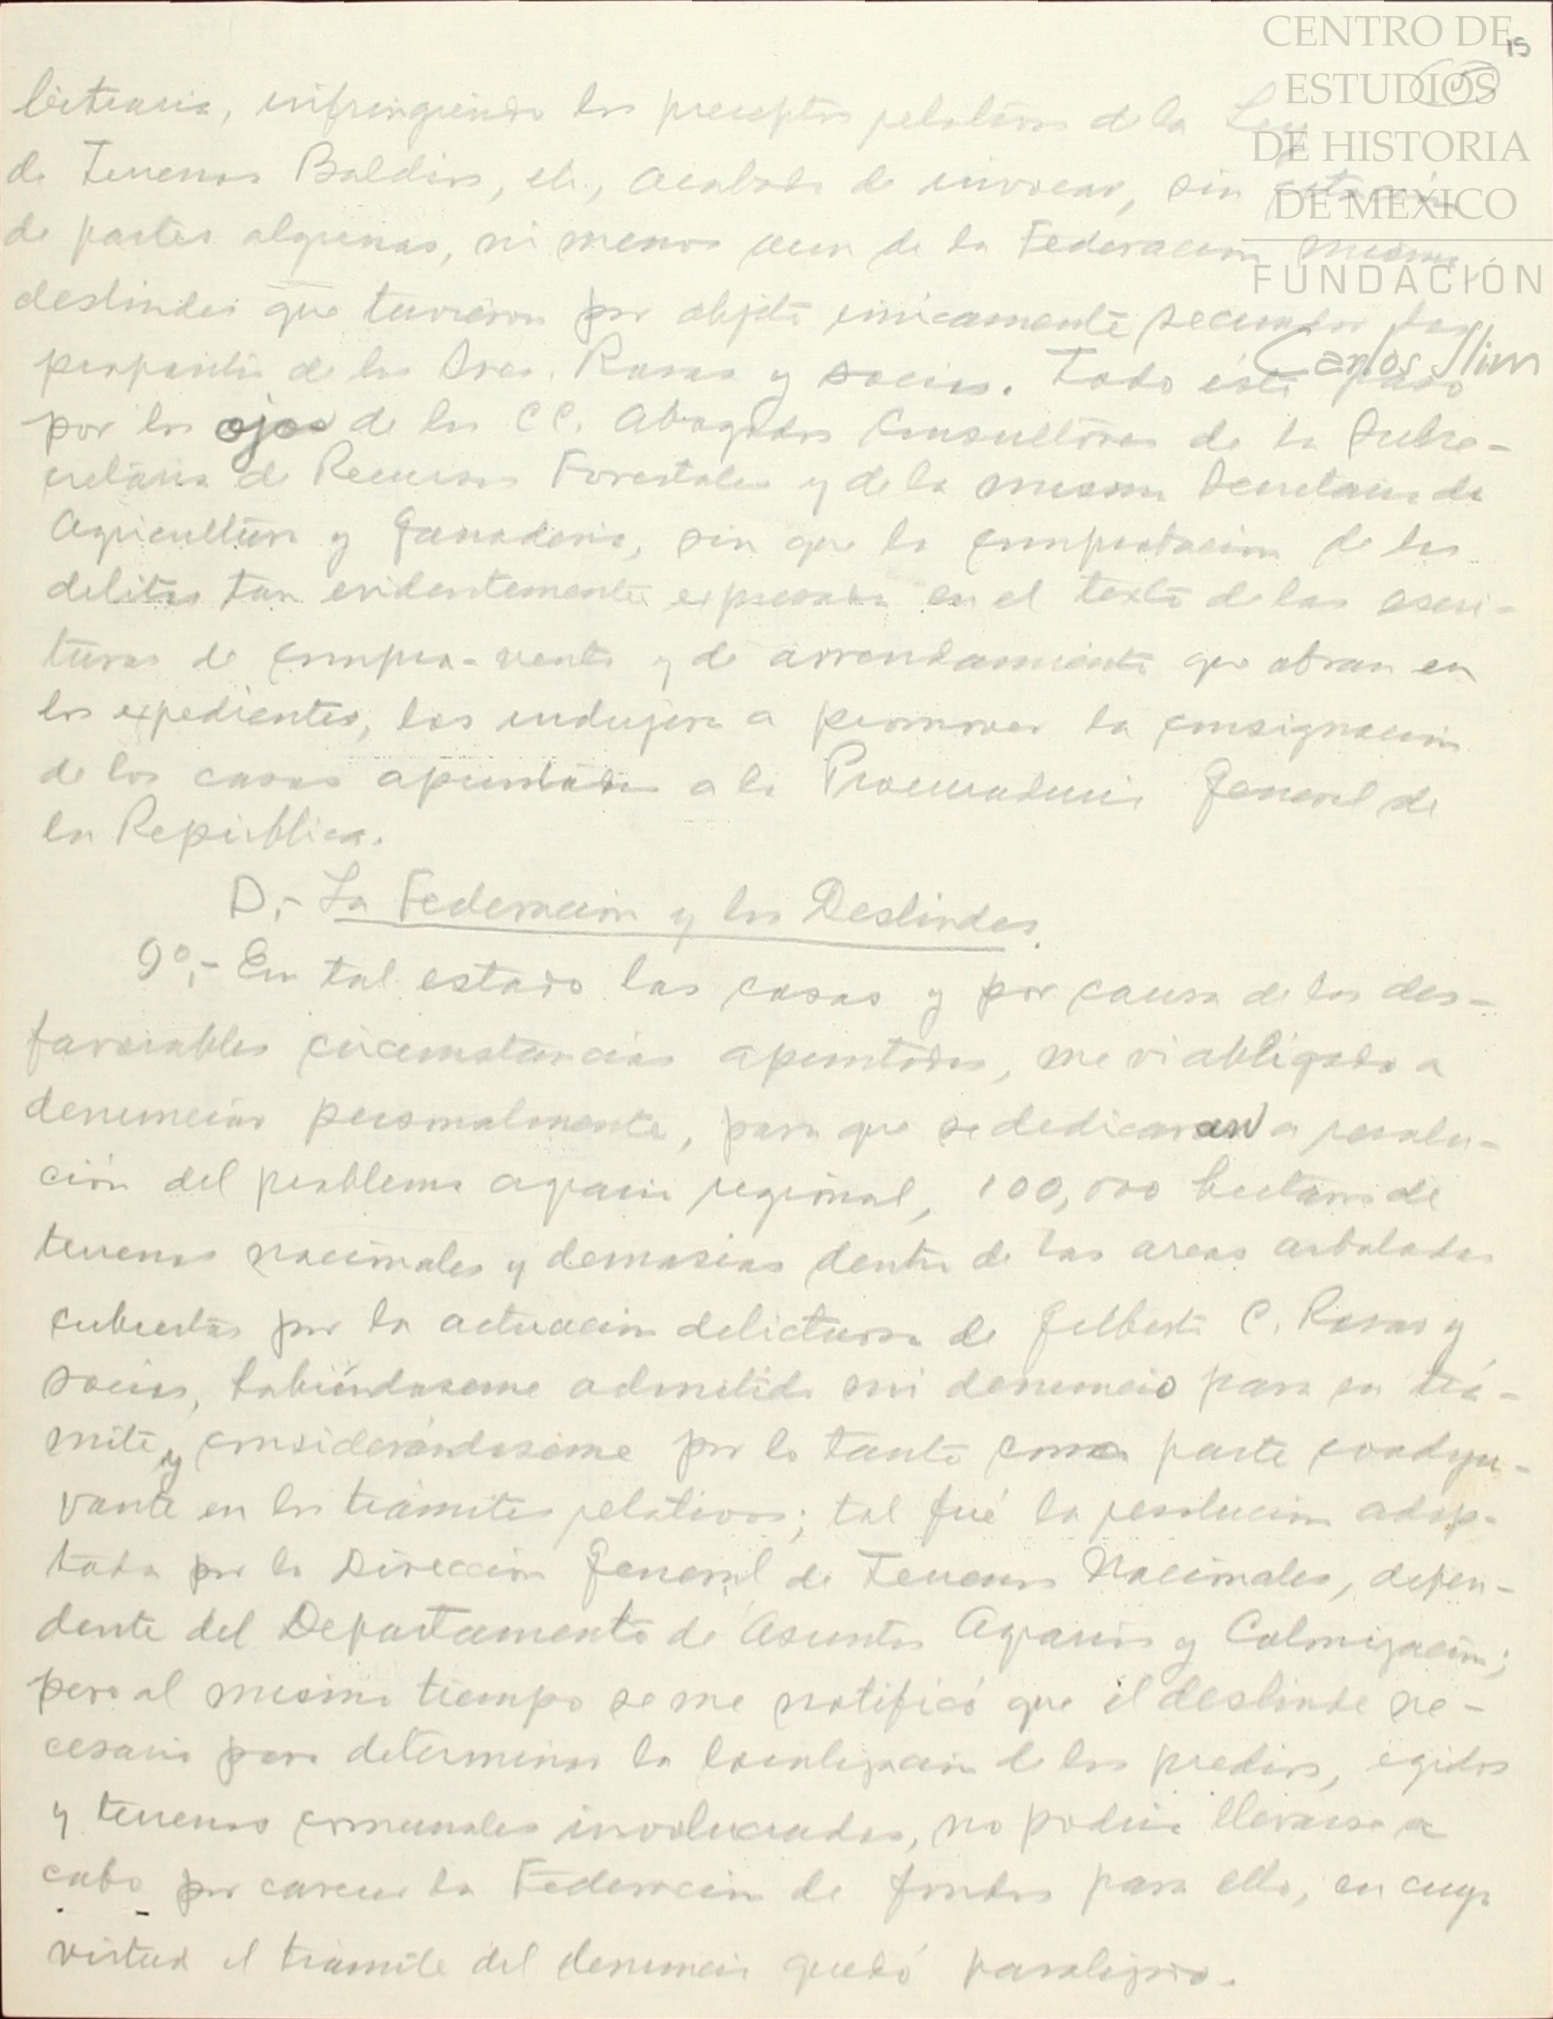 CENTRO DE
ESTUDIOS
DE HISTORIA
DE MEXICO
FUNDACIÓN
Carlos Slim
15
infringiendo los preceptos relativos de la Ley
de Terrenos Baldíos, etc., acabada de invocar, sin citación
de partes algunas, ni menos aun de la Federacion misma,
deslindes que tuvieron por objeto unicamente secundar los
de los Sres. Rosas y socios. Todo ésto pasó
por los ojos de los CC. Abogados Consultores de la Subse-
cretaria de Recursos Forestales y de la misma Secretaria de
Agricultura y Ganaderia, sin que la comprobacion de los
delitos tan evidentemente expresada en el texto de las escri-
turas de compra-venta y de arrendamiento que obran en
los expedientes, los indujera a promover la consignacion
de los casos apuntados a la Procuraduria General de
la República.
D.- La Federacion y los Deslindes.
9º.- En tal estado las cosas y por causa de las des-
favorables circumstancias apuntadas, me vi obligado a
denunciar personalmente, para que se dedicaran a resolu-
ción del problema agrario regional, 100,000 hectareas de
terrenos nacionales y demasias dentro de las areas arboladas
cubiertas por la actuacion delictuosa de Gilberto C. Rosas y
socios, habiéndoseme admitido mi denuncio para su trá-
mite y considerándoseme por lo tanto como parte coadyu-
vante en los trámites relativos; tal fué la resolucion adop-
tada por la Direccion General de Terrenos Nacionales, depen-
dente del Departamento de Asuntos Agrarios y Colonizacion;
pero al mismo tiempo se me notificó que el deslinde ne-
cesario para determinar la localizacion de los predios, egidos
y terrenos comunales involucrados, no podria llevarse a
cabo por carecer la Federacion de fondos para ello, en cuya
virtud el trámite del denuncio quedó paralizado.